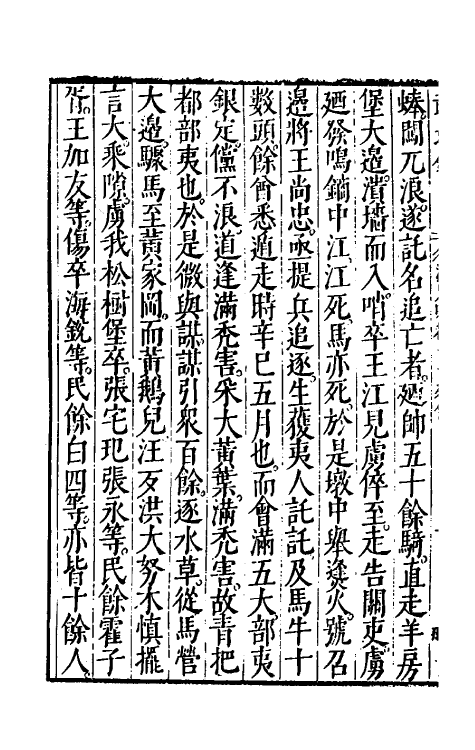 蜯闖兀浪遂託名追亡者廼帥五十餘騎直走羊房
堡大邊潰墻而入哨卒王江見虜倅至走告關吏虜
廼發鳴鏑中江江死馬亦死於是墩中舉燧火號召
邊將王尚忠亟提兵追逐生獲夷人託託及馬牛十
數頭餘曾悉遁走時辛巳五月也而會滿五大部夷
銀定儻不浪道逢滿禿害釆大黃葉滿禿害故青把
都部夷也於是微與謀謀引眾百餘逐水草從馬營
大邊驟馬至黃家岡而黃鵝兒汪友洪大努木慎擺
言大乘隙虜我松樹堡卒張宅玘張永等民餘霍子
胥王加友等傷卒海銳等民餘白四等亦皆十餘人